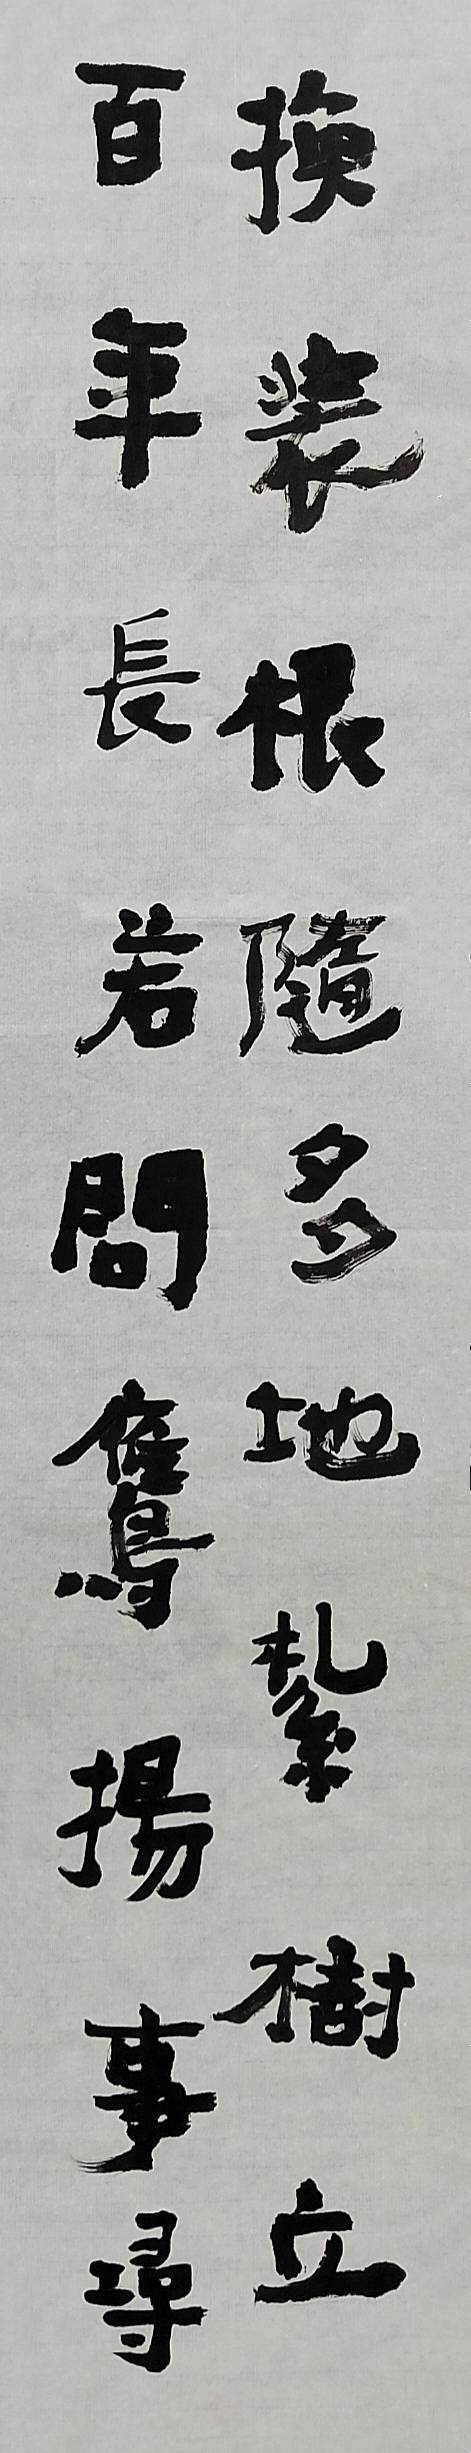 換裝根隨多地紮樹立
百年長若問鷹揚事尋